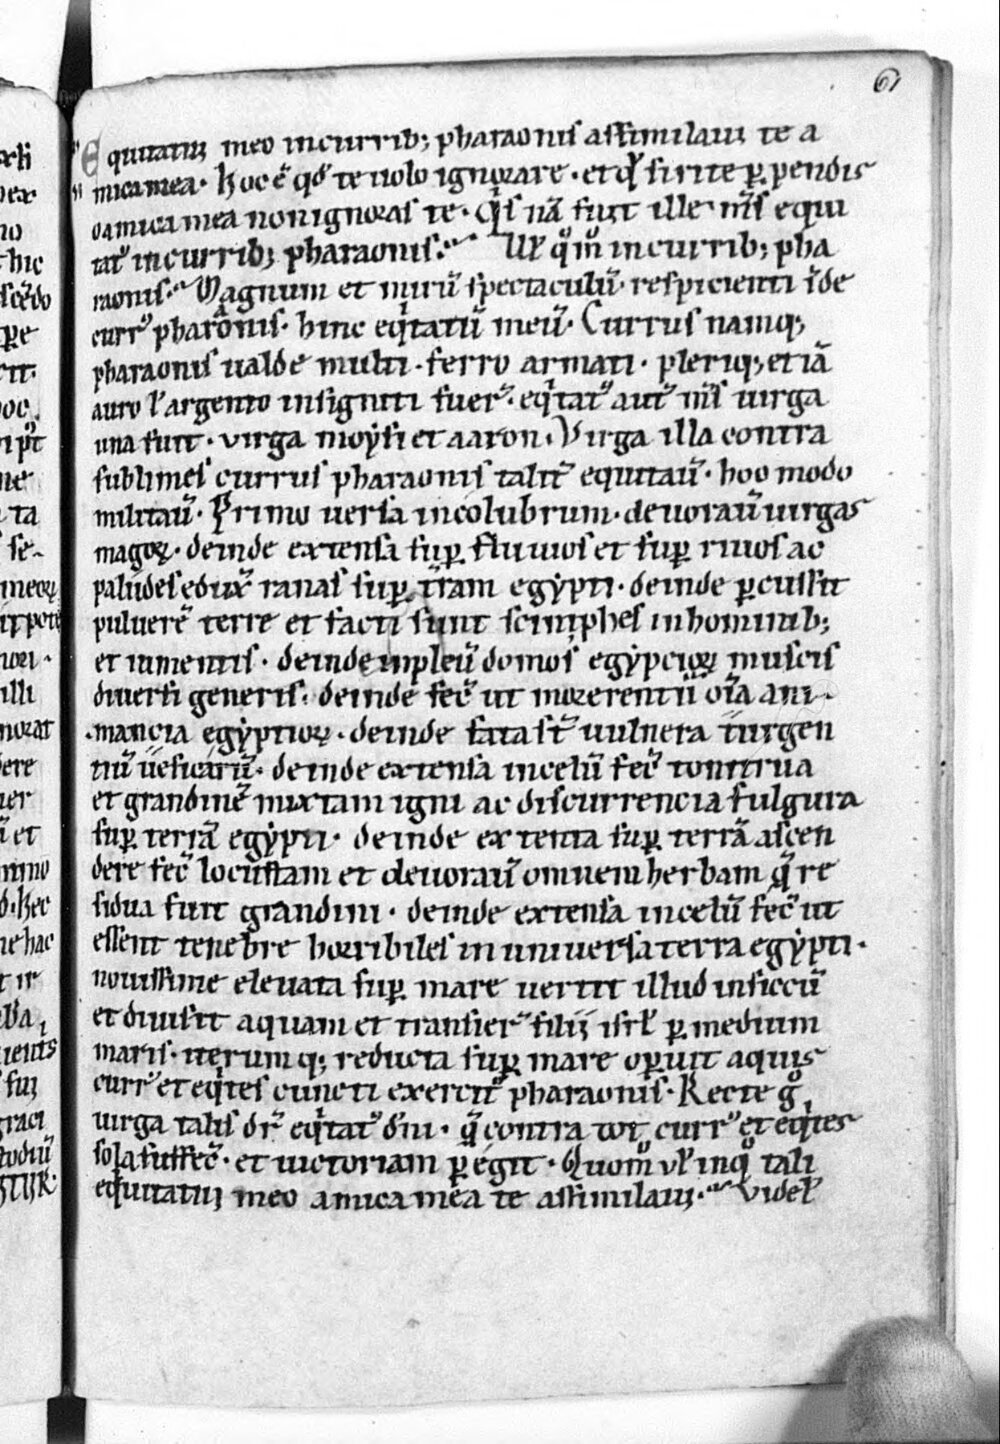 61
Equitatui meo in currib; pharaonis assimilaui te a
mica mea. Hoc ē qd̄ te uolo ignorare. et qd̄ si rite ꝑpendis
o amica mea non ignoras te. Qͥs nā fuit ille mīs equi
tatꝰ in currib; pharaonis. Ul̄ qͦmͦ in currib; pha
raonis. Magnum et mirū spectaculū. respicienti īde
currꝰ pharaonis. hinc eqͥtatū meū. Currus namq;
pharaonis ualde multi. ferro armati. pleriq; et iā
auro l̄ argento insigniti fuer̄. eqͥtatꝰ aut̄ mīs uirga
una fuit. virga moẏsi et aaron. Virga illa contra
sublimes currus pharaonis talit̄ equitau̅. hoo modo
militau̅. Primo uersa in colubrum. deuorau̅ uirgas
magoꝝ. deinde extensa suꝑ fluuios et suꝑ riuos ac
paludes edux̄ ranas suꝑ t̄ram egẏpti. deinde ꝑcussit
puluerē terre et facti sunt sciniphes in hominib;
et iumentis. deinde inpleu̅ domos egẏpcioꝝ muscis
diuersi generis. deinde fec̄ ut morerent̄ oīa ani
mancia egẏptioꝝ. deinde fata st̄ uulnera turgen
tiū uesicarū. deinde extensa in celū fec̄ tonitrua
et grandinē mixtam igni ac discurrencia fulgura
suꝑ terrā egẏpti. deinde extenta suꝑ terrā ascen
dere fec̄ locustam et deuorau̅ omnem herbam q̄ re
sidua fuit grandini. deinde extensa in celū fec̄ ut
essent tenebre horribiles in uniuersa terra egẏpti.
nouissime eleuata suꝑ mare uertit illud in siccū
et diuisit aquam et transier̄ filii isrl̄ ꝑ medium
maris. iterumq; reducta suꝑ mare oꝑuit aquis
currꝰ et eqͥtes cuncti exercitꝰ pharaonis. Recte gͦ
uirga talis dr̄ eqͥtatꝰ dn̄i. q̄ contra tot currꝰ et eqͥtes
sola suffec̄. et uictoriam ꝑegit. Quomͦ vl̄ in qͦ tali
equitatui meo amica mea te assimilaui. Videl̄